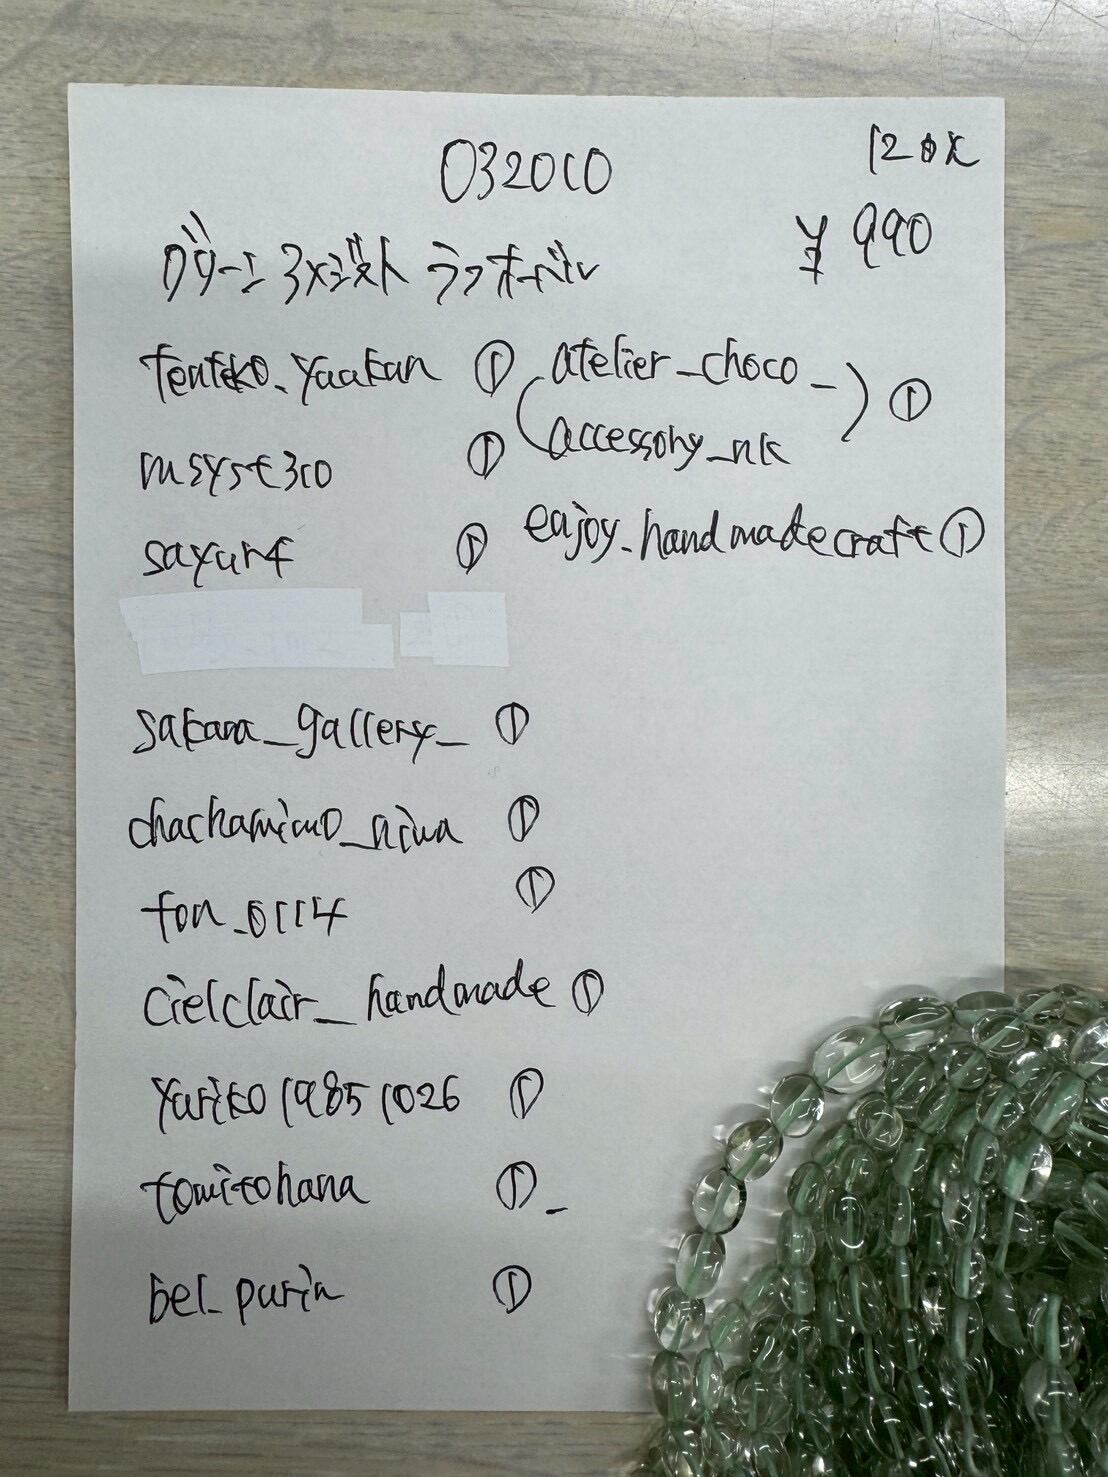 032010
120式
¥990
グリーンアメジスト ラフオーバル
tenteko_yaakan ①
msyst310 ①
sayur4 ①
sakana_gallery_ ①
chachamimo_niwa ①
fon_0114 ①
cielclair_handmade ①
yuriko19851026 ①
tomitohana ①_
bel_purin ①
(atelier_choco_
accessory_nk) ①
enjoy_handmadecraft ①